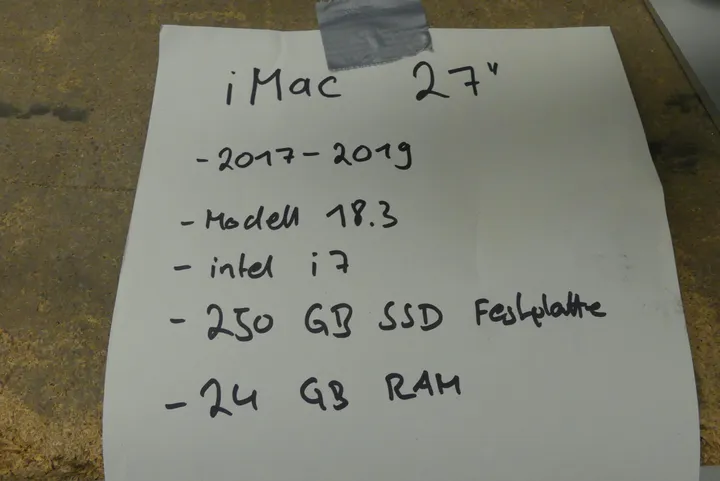 iMac 27"
- 2017 - 2019
- Modell 18.3
- intel i7
- 250 GB SSD Festplatte
- 24 GB RAM